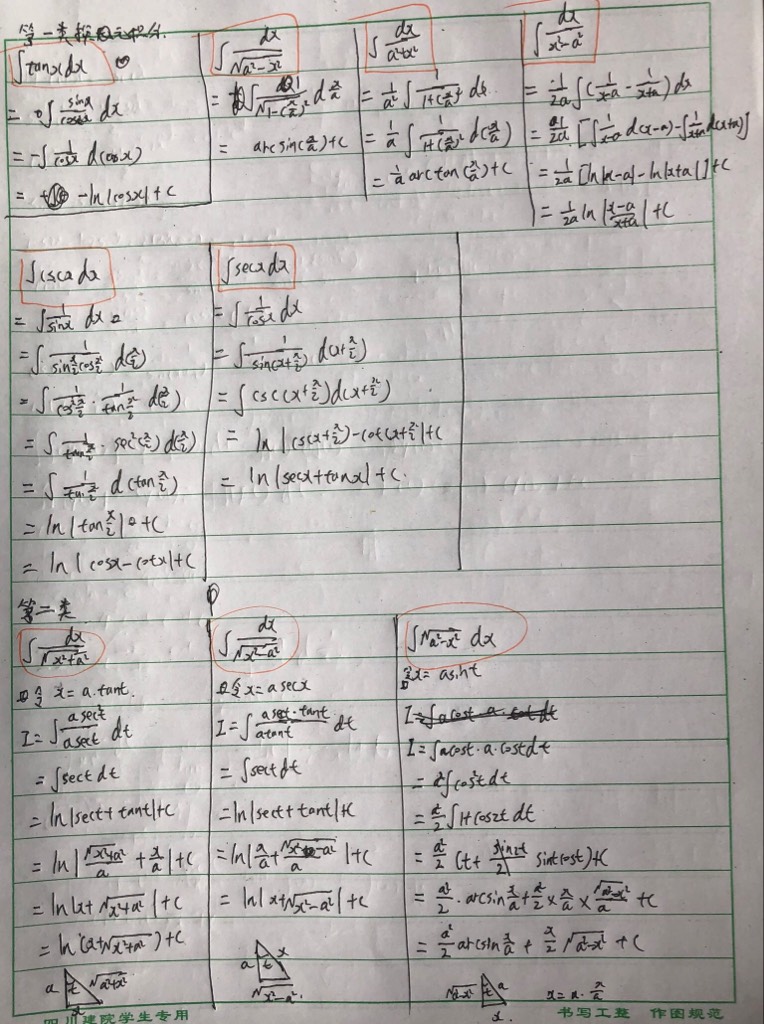 第一类换元积分.
∫tanxdx
= ∫ sinx/cosx dx
= -∫ 1/cosx d(cosx)
= -ln|cosx|+C
∫ dx/√(a²-x²)
= ∫ 1/√(1-(x/a)²) d x/a
= arcsin(x/a)+C
∫ dx/(a²+x²)
= 1/a² ∫ 1/(1+(x/a)²) dx
= 1/a ∫ 1/(1+(x/a)²) d(x/a)
= 1/a arctan(x/a)+C
∫ dx/(x²-a²)
= 1/2a ∫(1/(x-a) - 1/(x+a)) dx
= 1/2a [∫ 1/(x-a) d(x-a) - ∫ 1/(x+a) d(x+a)]
= 1/2a [ln|x-a| - ln|x+a|]+C
= 1/2a ln|(x-a)/(x+a)|+C
∫cscx dx
= ∫ 1/sinx dx
= ∫ 1/(sin x/2 cos x/2) d(x/2)
= ∫ 1/cos² x/2 · 1/tan x/2 d(x/2)
= ∫ 1/tan x/2 · sec²(x/2) d(x/2)
= ∫ 1/tan x/2 d(tan x/2)
= ln|tan x/2|+C
= ln|cosx-cotx|+C
∫secxdx
= ∫ 1/cosx dx
= ∫ 1/sin(x+π/2) d(x+π/2)
= ∫csc(x+π/2)d(x+π/2)
= ln|csc(x+π/2)-cot(x+π/2)|+C
= ln|secx+tanx|+C.
第二类
∫ dx/√(x²+a²)
令 x=a·tant.
I=∫ asec²t/asect dt
=∫sect dt
=ln|sect+tant|+C
=ln|√(x²+a²)/a + x/a|+C
=ln|x+√(x²+a²)|+C
=ln(x+√(x²+a²))+C
a t √(a²+x²)
x
∫ dx/√(x²-a²)
令x=asecx
I=∫ asect·tant/atant dt
=∫sect dt
=ln|sect+tant|+C
=ln|x/a+√(x²-a²)/a|+C
=ln|x+√(x²-a²)|+C
a t x
√(x²-a²).
∫√(a²-x²) dx
令x=asint
I=∫acost·a·costdt
=a²∫cos²tdt
=a²/2 ∫1+cos2t dt
=a²/2 (t+ sintcost)+C
=a²/2·arcsin x/a + a²/2 × x/a × √(a²-x²)/a +C
=a²/2 arcsin x/a + x/2 √(a²-x²) +C
√(a²-x²) t a
x.
x=a·x/a
四川建院学生专用
书写工整 作图规范